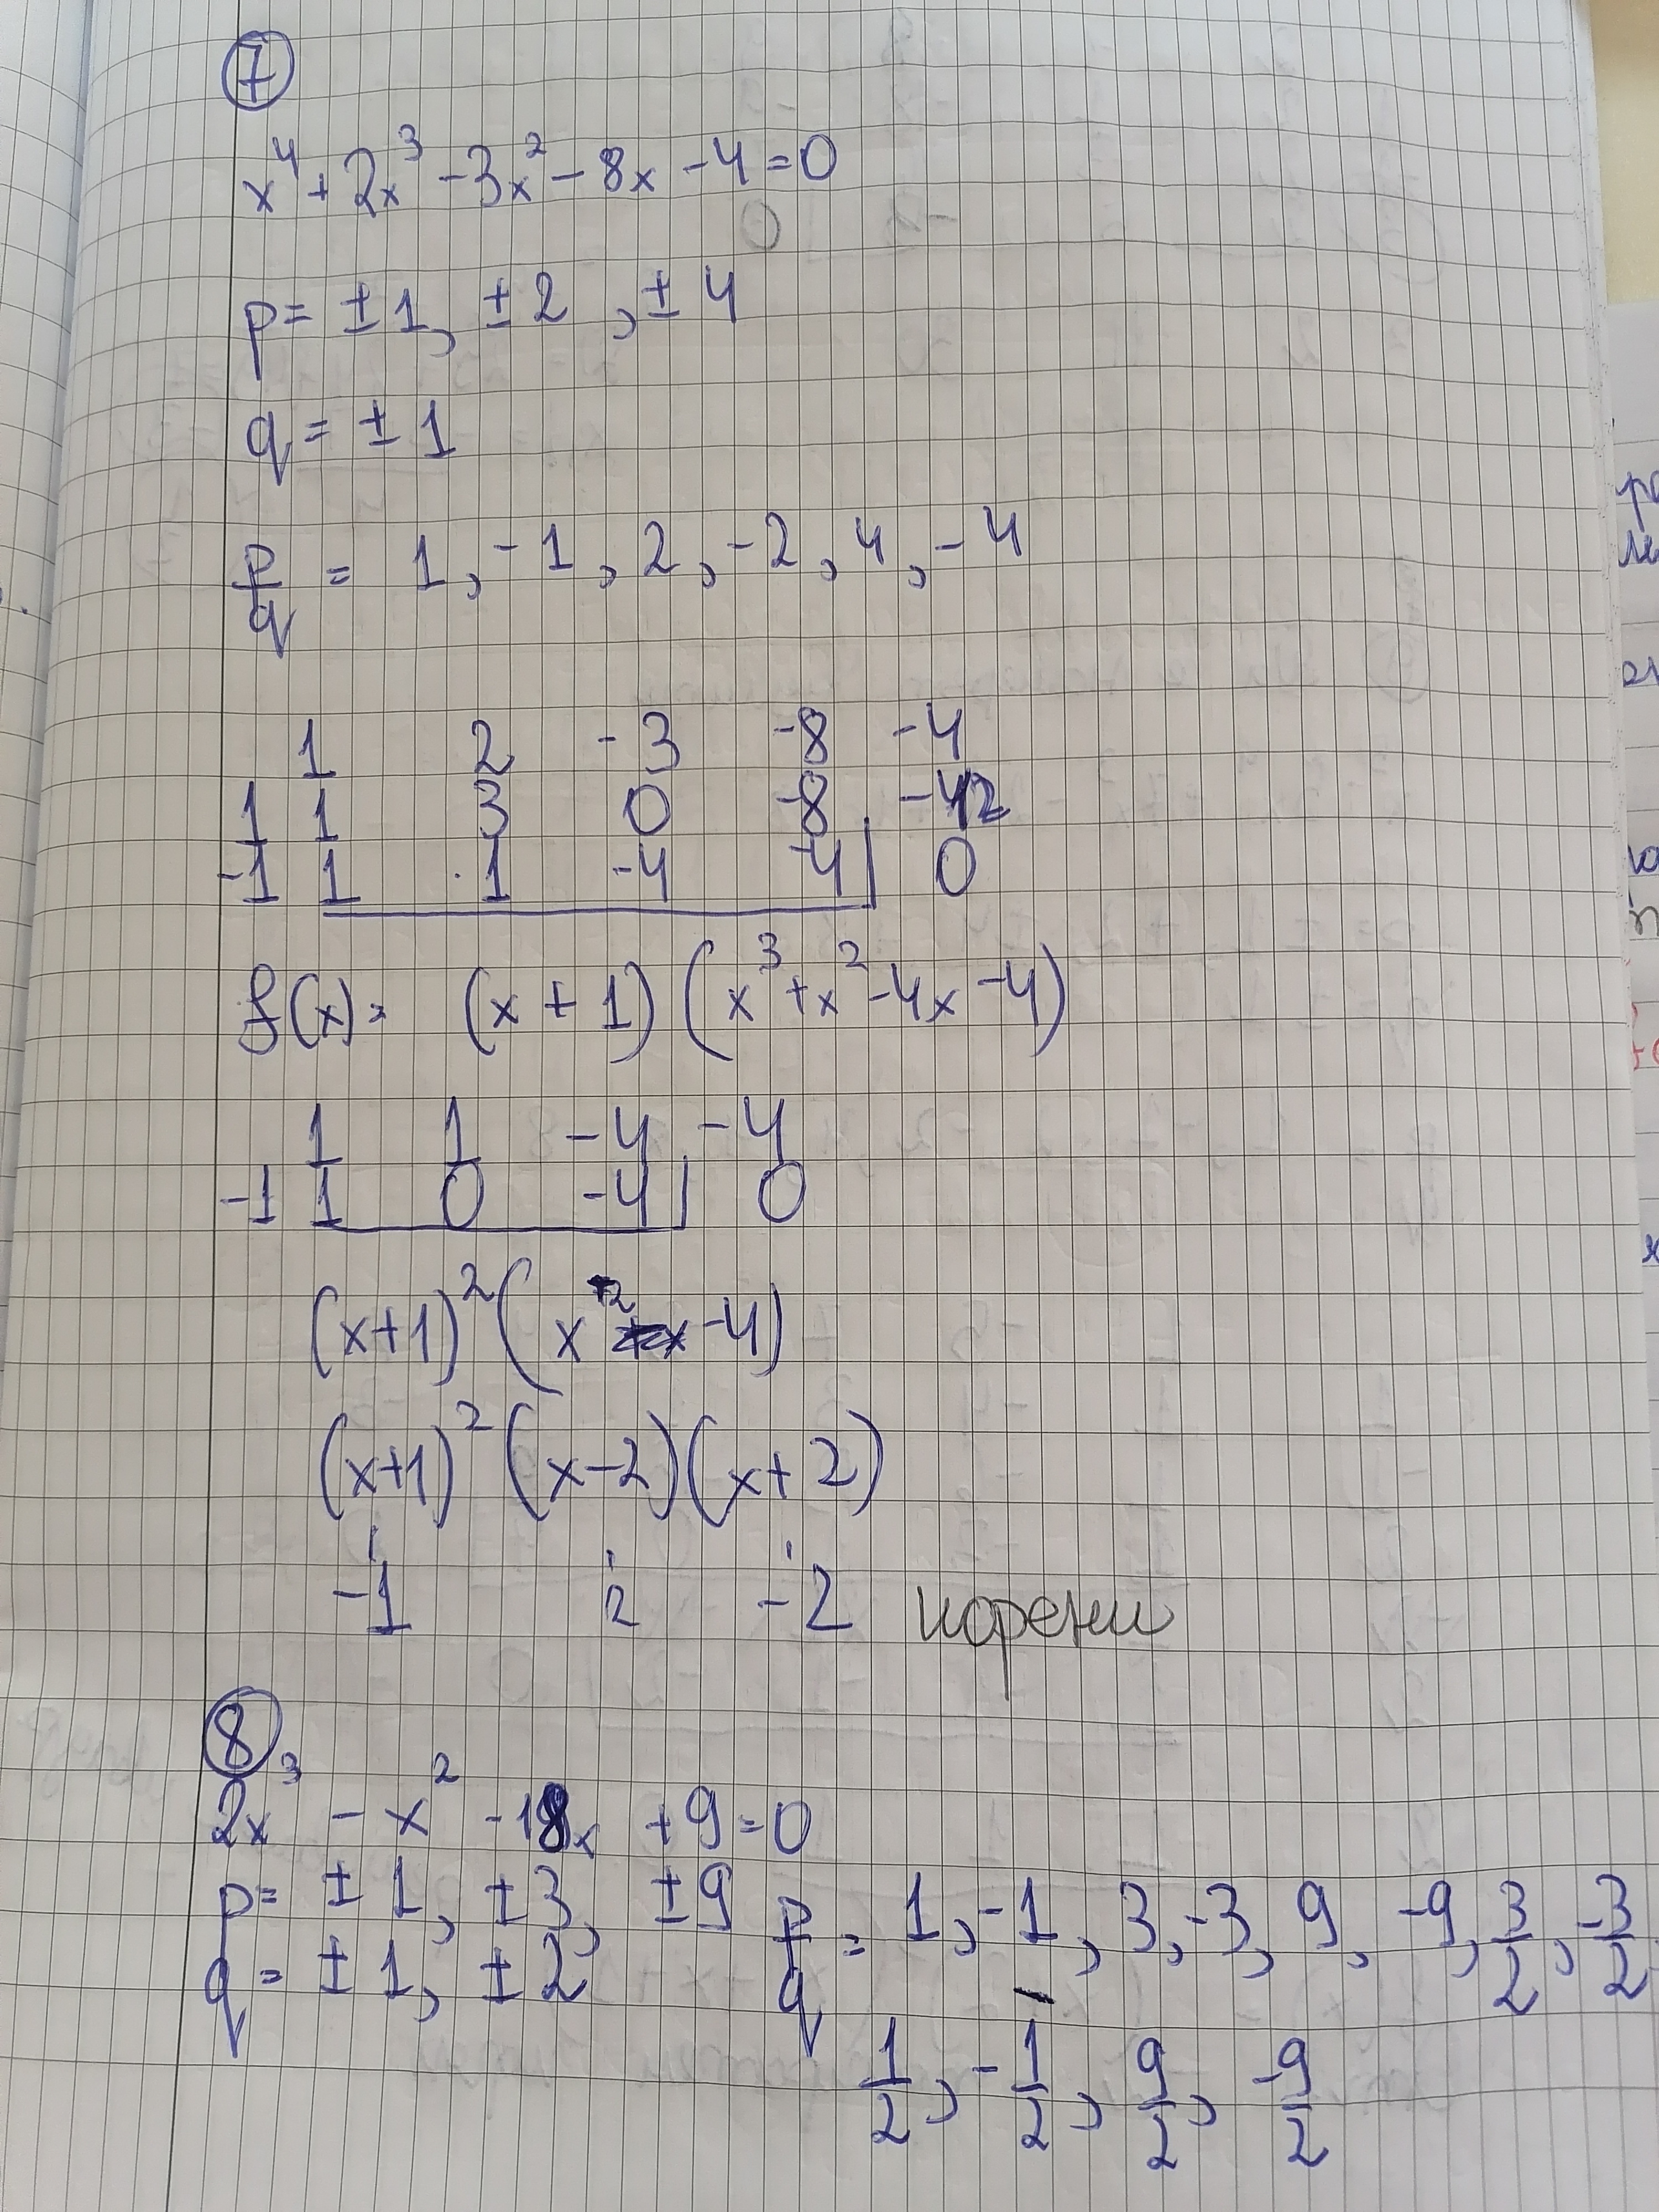 7
x⁴ + 2x³ - 3x² - 8x - 4 = 0
p = ± 1, ± 2, ± 4
q = ± 1
p/q = 1, -1, 2, -2, 4, -4
1 2 -3 -8 -4
1 1 3 0 -8 -12
-1 1 1 -4 -4 0
f(x) = (x + 1) (x³ + x² - 4x - 4)
1 1 -4 -4
-1 1 0 -4 0
(x+1)² (x² - 4)
(x+1)² (x-2)(x+2)
-1 2 -2 корени
8
2x³ - x² - 18x + 9 = 0
p = ± 1, ± 3, ± 9
q = ± 1, ± 2
p/q = 1, -1, 3, -3, 9, -9, 3/2, -3/2
1/2, -1/2, 9/2, -9/2